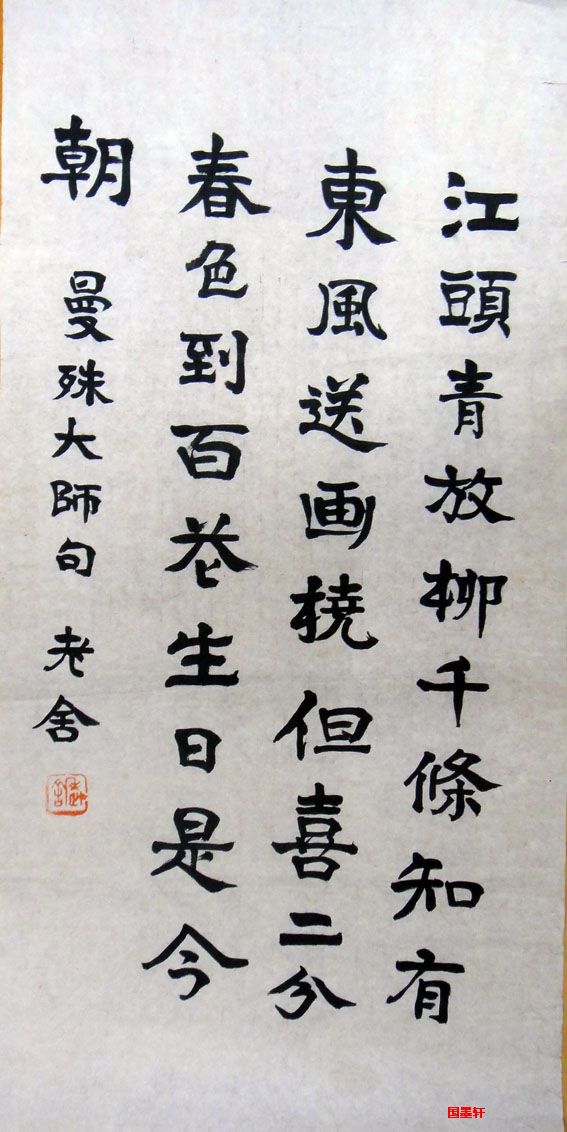 江頭青放柳千條知有
東風送画橈但喜二分
春色到百花生日是今
朝
曼殊大師句 老舍
老舍
国墨轩